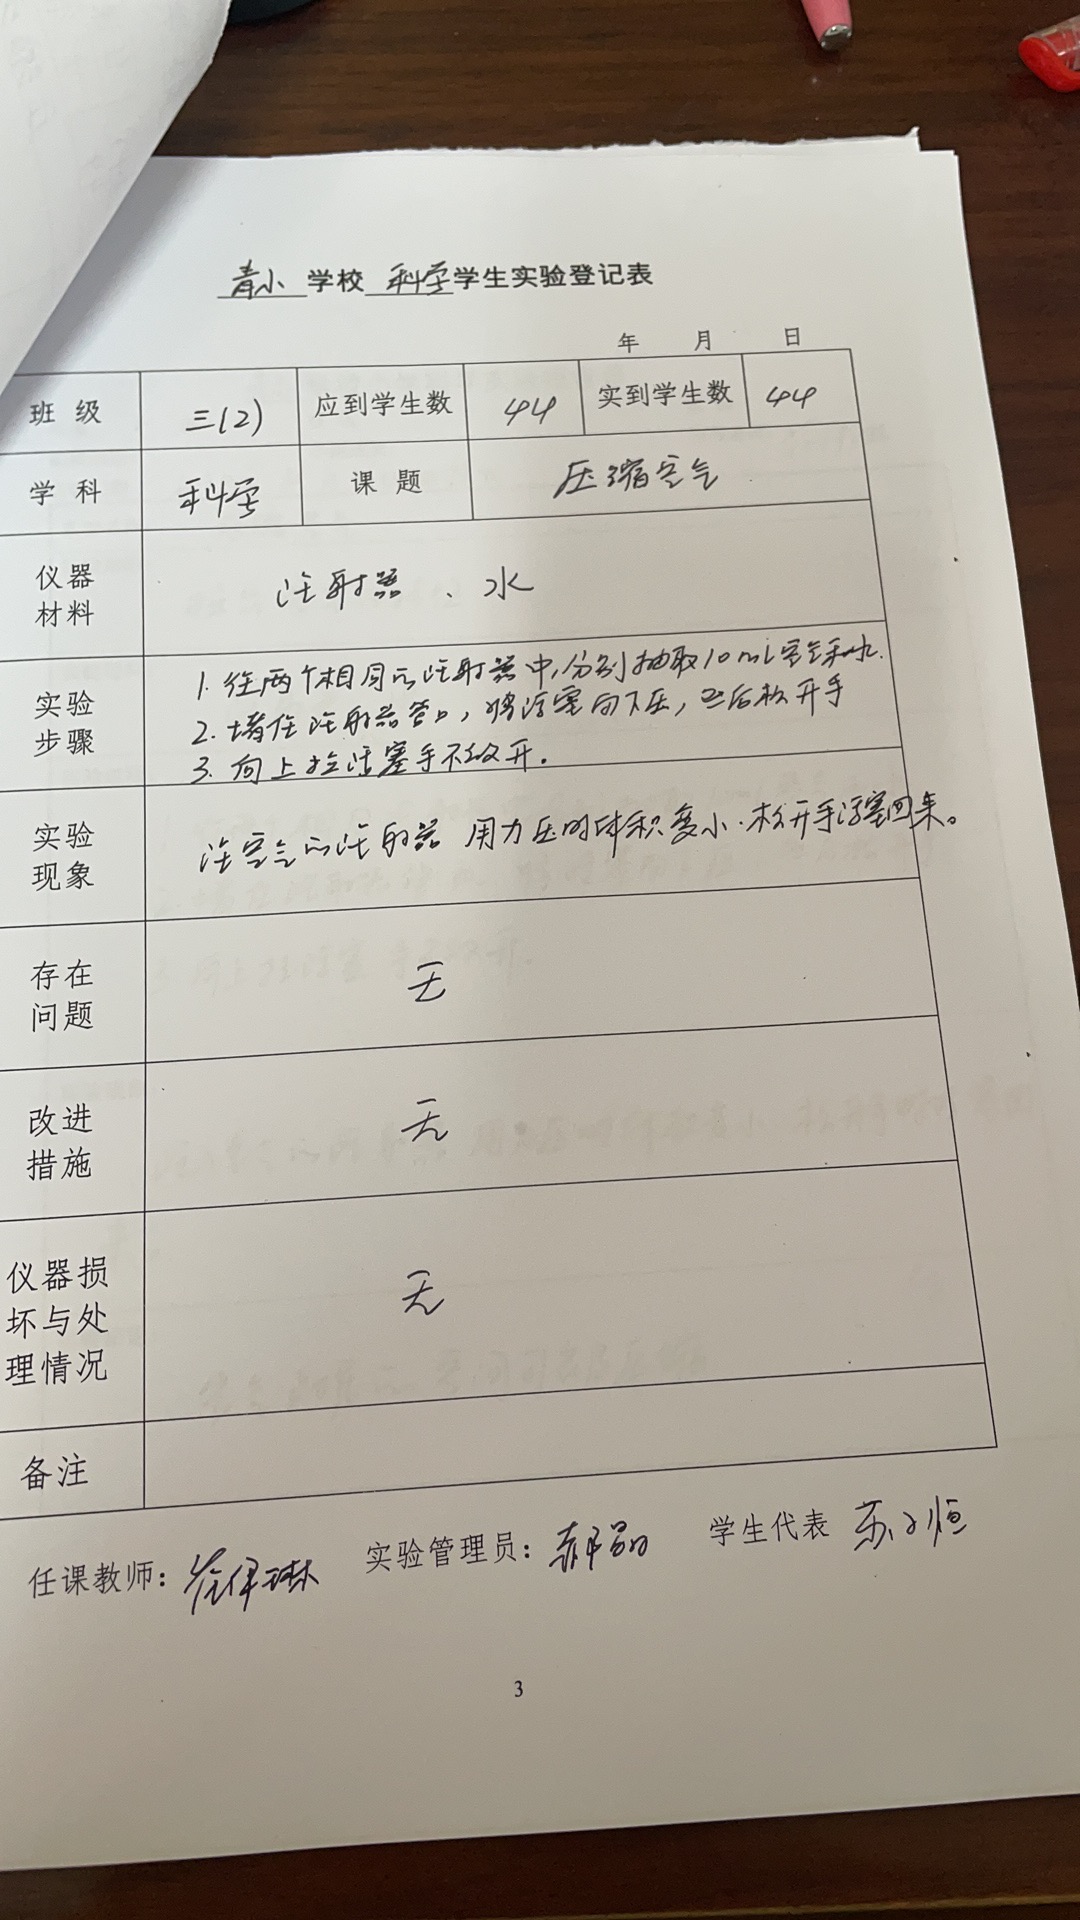 青小 学校 科学 学生实验登记表
年 月 日
班 级 三(2) 应到学生数 44 实到学生数 44
学 科 科学 课 题 压缩空气
仪器
材料
注射器、水
实验
步骤
1. 往两个相同的注射器中,分别抽取10ml空气和水.
2. 堵住注射器管口,将活塞向下压,然后松开手
3. 向上拉活塞手不放开.
实验
现象
注空气的注射器 用力压时体积变小.松开手活塞回来。
存在
问题
无
改进
措施
无
仪器损
坏与处
理情况
无
备注
任课教师: 实验管理员: 学生代表
3